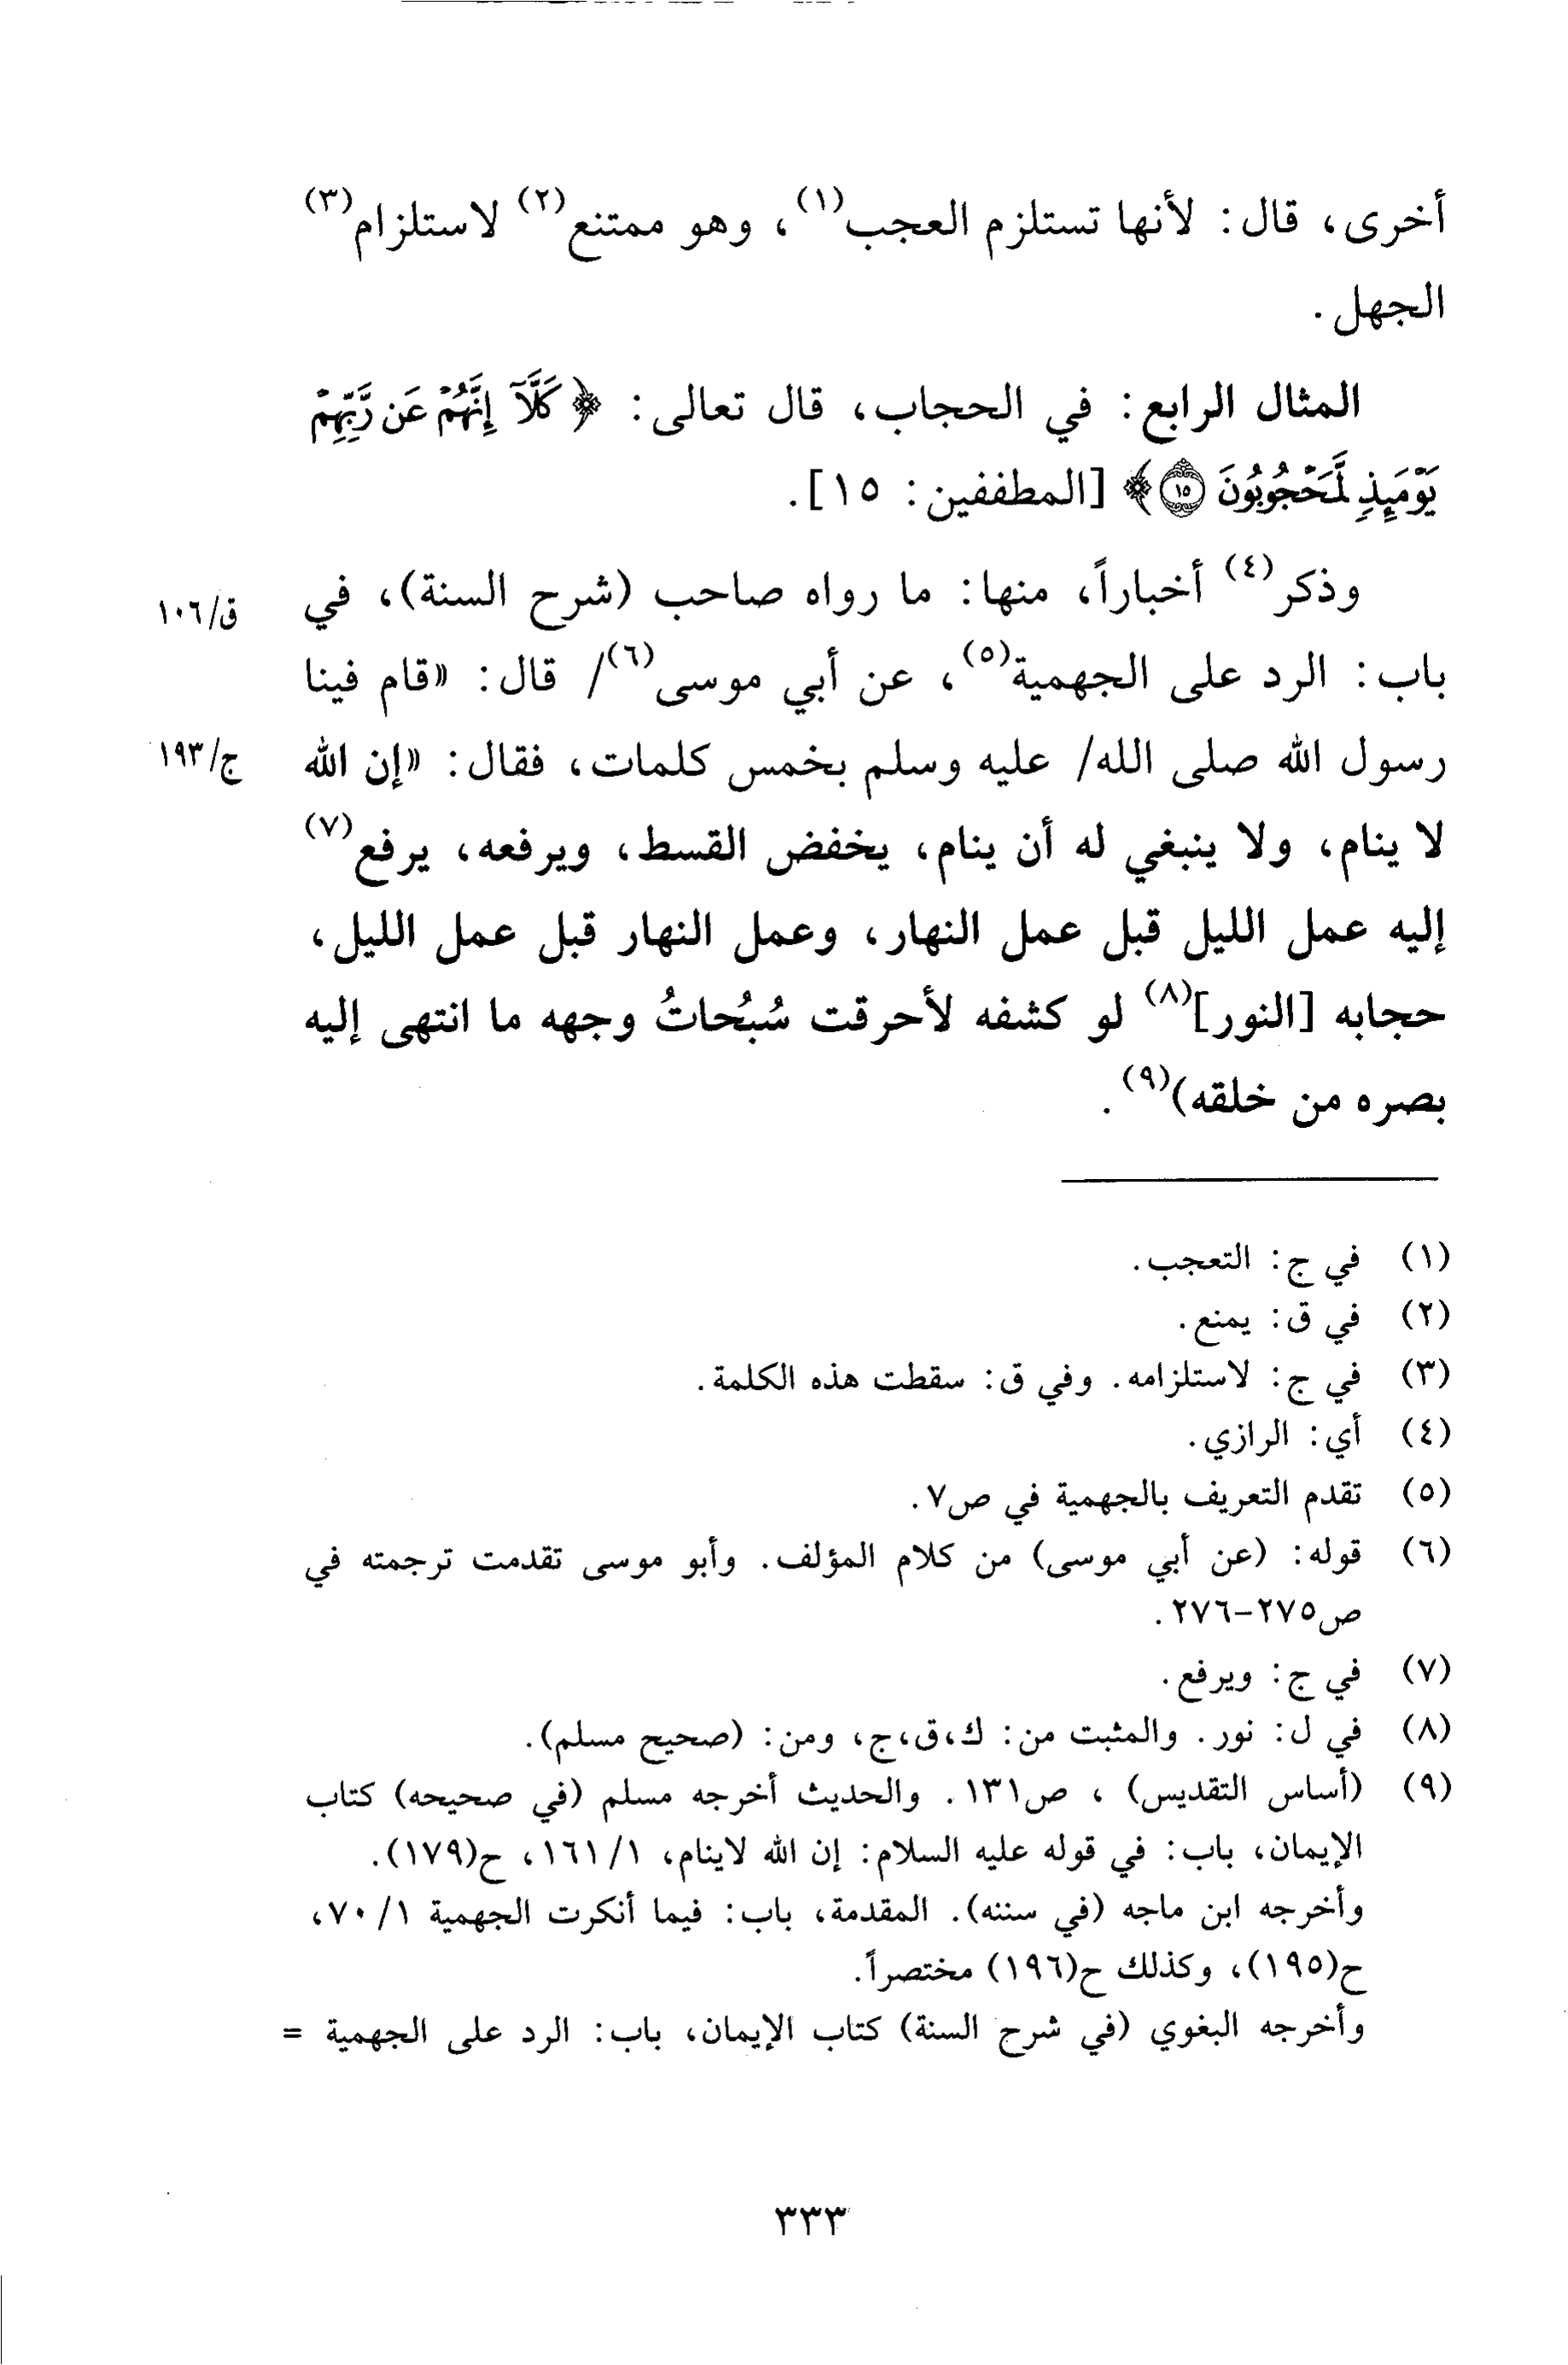 أخرى، قال: لأنها تستلزم العجب(١)، وهو ممتنع(٢) لاستلزام(٣)
الجهل.
المثال الرابع: في الحجاب، قال تعالى: ﴿ كَلَّآ إِنَّهُمْ عَن رَّبِّهِمْ
يَوْمَئِذٍ لَّمَحْجُوبُونَ ١٥ ﴾ [المطففين: ١٥].
وذكر(٤) أخباراً، منها: ما رواه صاحب (شرح السنة)، في
ق/١٠٦
باب: الرد على الجهمية(٥)، عن أبي موسى(٦)/ قال: «قام فينا
رسول الله صلى الله/ عليه وسلم بخمس كلمات، فقال: «إن الله
ج/١٩٣
لا ينام، ولا ينبغي له أن ينام، يخفض القسط، ويرفعه، يرفع(٧)
إليه عمل الليل قبل عمل النهار، وعمل النهار قبل عمل الليل،
حجابه [النور](٨) لو كشفه لأحرقت سُبُحاتُ وجهه ما انتهى إليه
بصره من خلقه)(٩).
(١) في ج: التعجب.
(٢) في ق: يمنع.
(٣) في ج: لاستلزامه. وفي ق: سقطت هذه الكلمة.
(٤) أي: الرازي.
(٥) تقدم التعريف بالجهمية في ص٧.
(٦) قوله: (عن أبي موسى) من كلام المؤلف. وأبو موسى تقدمت ترجمته في
ص٢٧٥-٢٧٦.
(٧) في ج: ويرفع.
(٨) في ل: نور. والمثبت من: ك،ق،ج، ومن: (صحيح مسلم).
(٩) (أساس التقديس) ، ص١٣١. والحديث أخرجه مسلم (في صحيحه) كتاب
الإيمان، باب: في قوله عليه السلام: إن الله لاينام، ١/ ١٦١، ح(١٧٩).
وأخرجه ابن ماجه (في سننه). المقدمة، باب: فيما أنكرت الجهمية ١/ ٧٠،
ح(١٩٥)، وكذلك ح(١٩٦) مختصراً.
وأخرجه البغوي (في شرح السنة) كتاب الإيمان، باب: الرد على الجهمية =
٣٣٣